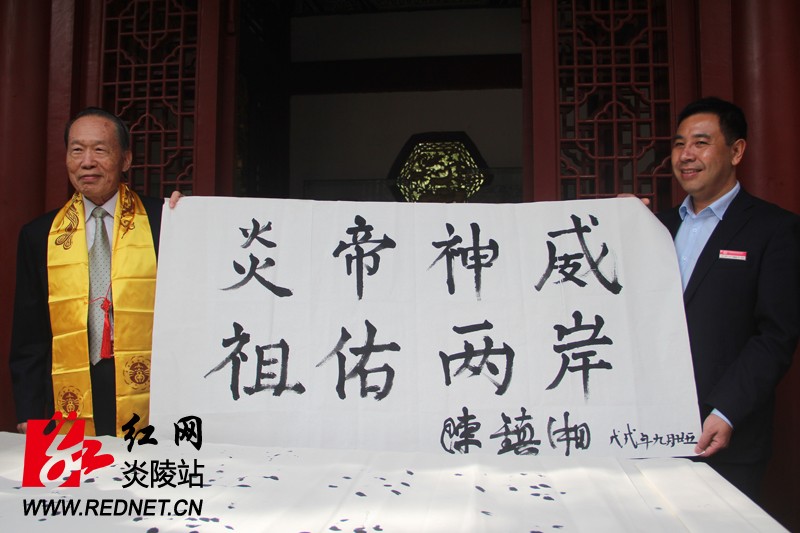 炎帝神威
祖佑两岸
陳鎮湘
戊戌年九月廿五
红网
炎陵站
WWW.REDNET.CN